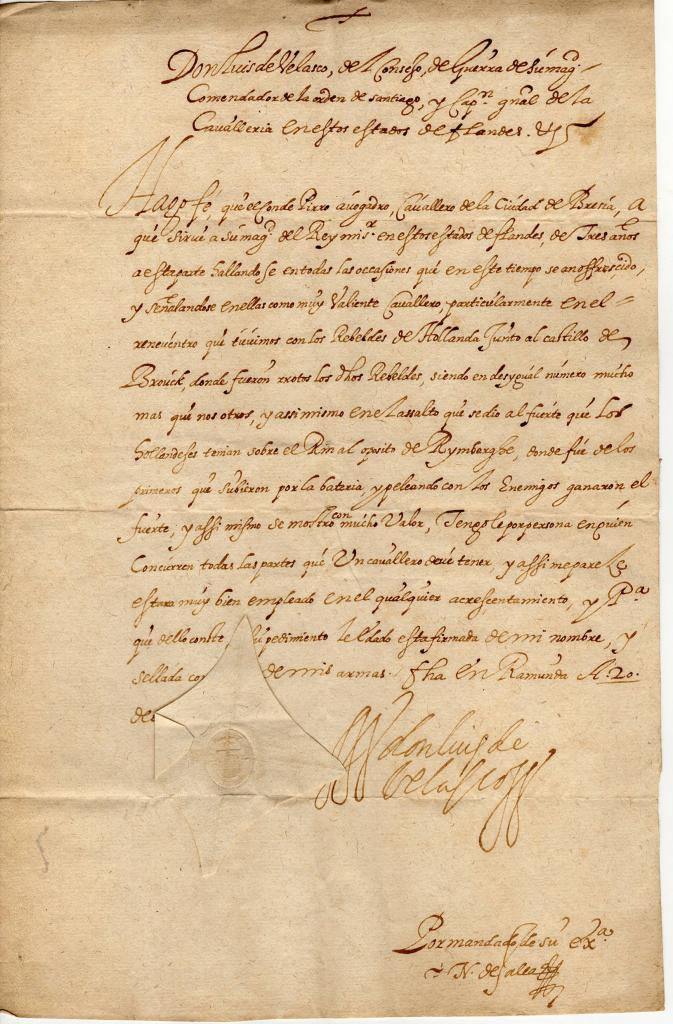 Don Luis de Velasco, del Consejo, de Guerra de su magᵈ
Comendador de la orden de santiago, y Capⁿ gnãl de la
Cavalleria en estos estados de flandes. &
Hago fe, que el Conde Pirro avogadro, Cavallero de la Ciudad de Bresia, a
que sirve a su magᵈ del Rey mi sʳ en estos estados de flandes, de Tres años
a esta parte hallandose en todas las occasiones que en este tiempo se an offrescido,
y señalandose en ellas como muy Valiente Cavallero, particularmente en el
rencuentro que tuvimos con los Rebeldes de Hollanda Junto al castillo de
Brouck, donde fueron rrotos los dhos Rebeldes, siendo en desygual número mucho
mas que nosotros, y assimismo en el assalto que se dio al fuerte que los
hollandeses tenian sobre el Rin al oposito de Rymberghe, donde fue de los
primeros que subieron por la bateria, y peleando con los Enemigos ganaron el
fuerte, y assi mismo se mostro con mucho Valor, Tengole por persona en quien
Concurren todas las partes que Un cavallero deve tener, y assi me pareçe
estara muy bien empleado en el qualquier acrescentamiento, y Pᵃ
que dello conste, su pedimiento le e dado esta firmada de mi nombre, y
sellada co de mis armas. fha en Ramunda A. 20.
de
don luis de
velasco
Por mandado de su exᵃ
N. de